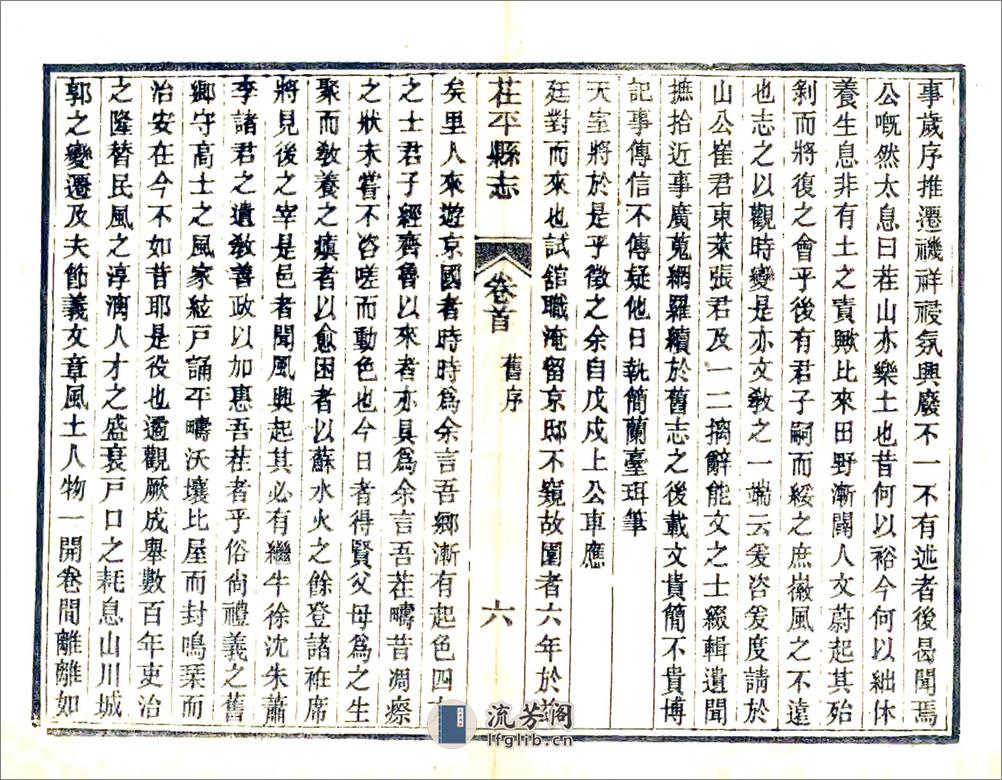 事歲序推遷禨祥祲氛興廢不一不有述者後曷聞焉
公嘅然太息曰茬山亦樂土也昔何以裕今何以絀休
養生息非有土之責歟比來田野漸闢人文蔚起其殆
剝而將復之會乎後有君子嗣而綏之庶徽風之不遠
也志之以觀時變是亦文敎之一端云爰咨爰度請於
山公崔君東萊張君及一二摛辭能文之士綴輯遺聞
摭拾近事廣蒐網羅續於舊志之後載文貴簡不貴博
記事傳信不傳疑他日執簡蘭臺珥筆
天室將於是乎徵之余自戊戌上公車應
廷對而來也試舘職淹留京邸不窺故園者六年於
茌平縣志
卷首
舊序
六
矣里人來遊京國者時時爲余言吾鄉漸有起色四方
之士君子經齊魯以來者亦具爲余言吾茬疇昔凋瘵
之狀未嘗不咨嗟而動色也今日者得賢父母爲之生
聚而敎養之瘨者以愈困者以蘇水火之餘登諸袵席
將見後之宰是邑者聞風興起其必有繼牛徐沈朱蕭
李諸君之遺敎善政以加惠吾茬者乎俗尙禮義之舊
鄉守高士之風家絃戸誦平疇沃壤比屋而封鳴琹而
治安在今不如昔耶是役也遹觀厥成舉數百年吏治
之隆替民風之淳漓人才之盛衰戸口之耗息山川城
郭之變遷及夫節義文章風土人物一開卷間離離如
流芳閣
lfglib.cn